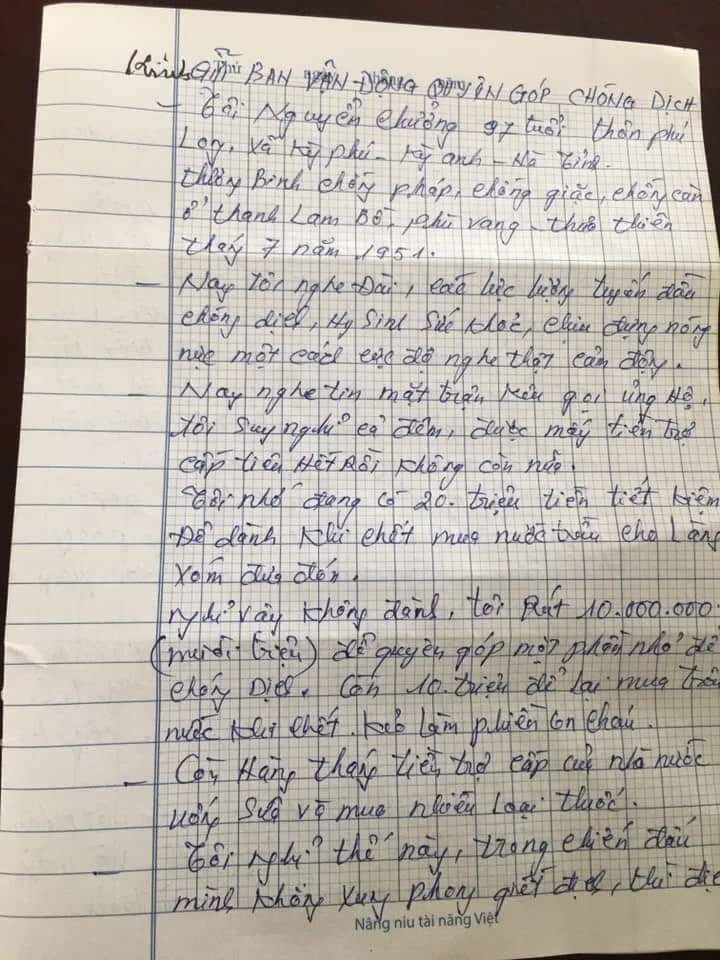 Kính gửi BAN VẬN ĐỘNG QUYÊN GÓP CHỐNG DỊCH
- Tôi Nguyễn Chưởng 97 tuổi thôn phú
Long, xã Kỳ phú - Kỳ anh - Hà Tỉnh.
thương Binh chống pháp, chống giặc, chống càn
ở thanh Lam Bồ, phú vang - thừa thiên
tháy 7 năm 1951.
- Nay tôi nghe Đài, các lực lượng tuyến đầu
chống dịch, Hy Sinh Sức khoẻ, chịu đựng nóng
nực một cách cực độ nghe thật cảm động.
- Nay nghe tin mặt trận kêu gọi ủng Hộ,
tôi Suy nghĩ cả đêm, được mấy tiền trợ
cấp tiêu Hết Rồi không còn nữa.
Tôi nhớ đang có 20. triệu tiền tiết kiệm
Để dành khi chết mua nước trầu cho Làng
xóm đưa đón.
nghĩ vậy không đành, tôi Rút 10.000.000
(mười triệu) để quyên góp một phần nhỏ để
chống Dịch. Còn 10. triệu để lại mua trầu
nước khi chết. kẻo làm phiền con cháu.
- Còn Hàng tháng tiền trợ cấp của nhà nước
uống Sữa và mua nhiều loại thuốc.
- Tôi nghĩ thế này, trong chiến đấu
mình không xung phong giết địch, thì địch
Nâng niu tài năng Việt